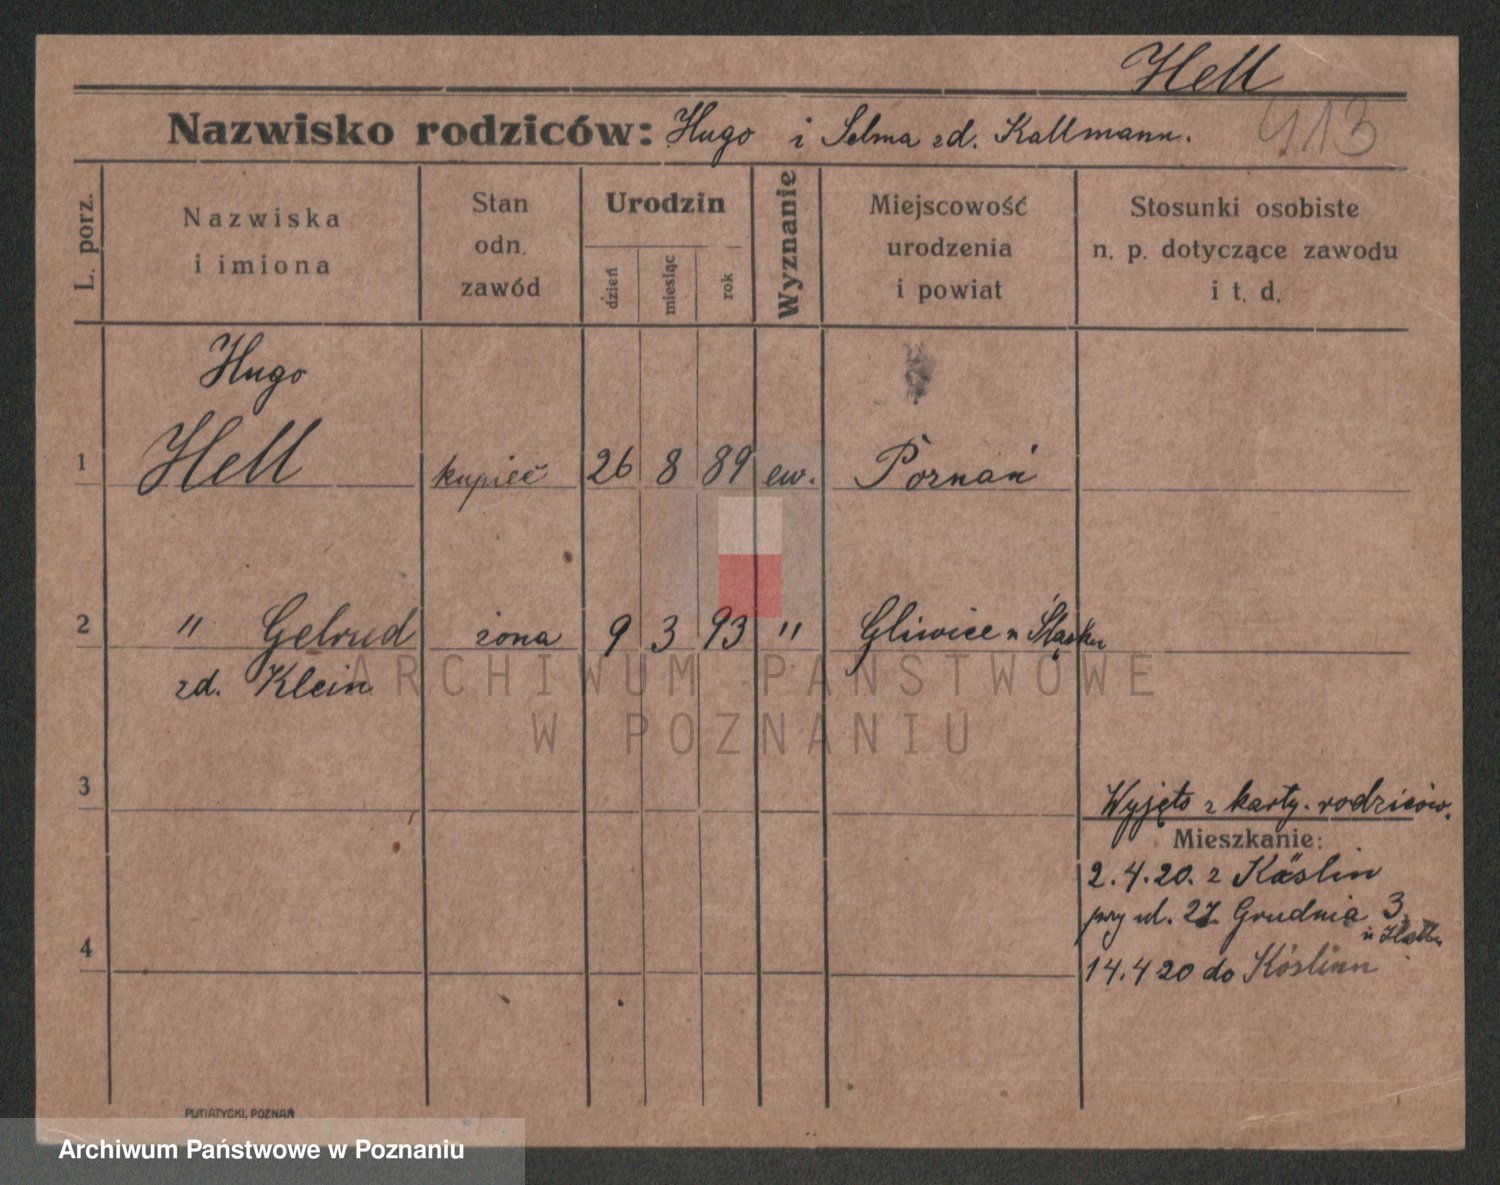 Hell
Nazwisko rodziców: Hugo i Selma zd. Kallmann.
413
L. porz.
Nazwiska
i imiona
Stan
odn.
zawód
Urodzin
dzień
miesiąc
rok
Wyznanie
Miejscowość
urodzenia
i powiat
Stosunki osobiste
n. p. dotyczące zawodu
i t. d.
Hugo
1 Hell kupiec 26 8 89 ew. Poznań
2 " Gelrud żona 9 3 93 " Gliwice n Śląsku
zd. Klein
3
Wyjęto z karty rodziców.
Mieszkanie:
2.4.20. z Käslin
przy ul. 27 Grudnia 3.
u
4
14.4 20 do Köslinn
PUTIATYCKI, POZNAŃ
ARCHIWUM PAŃSTWOWE
W POZNANIU
Archiwum Państwowe w Poznaniu